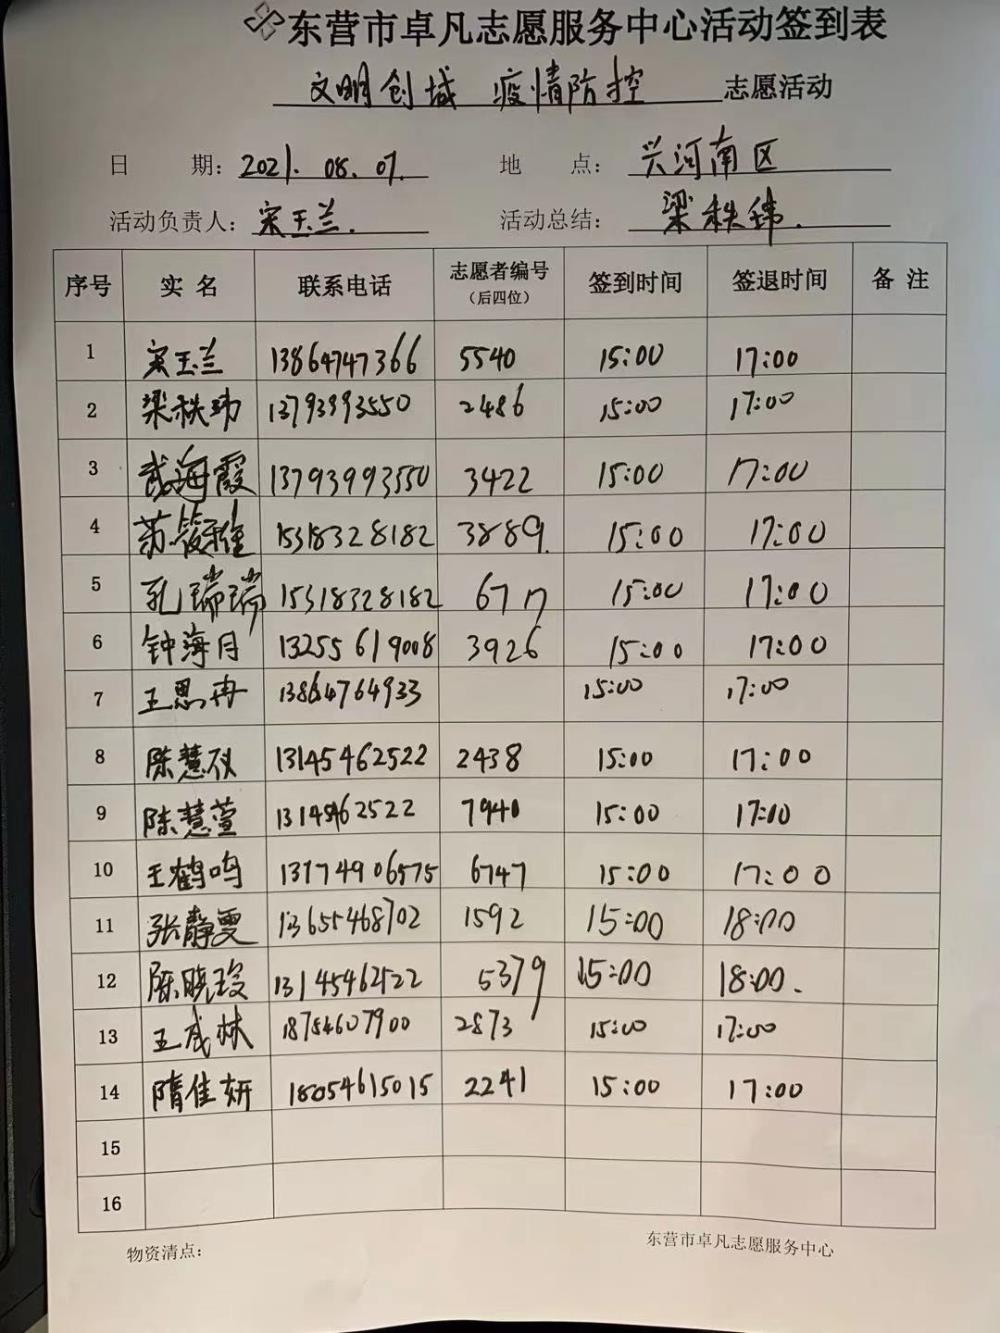 东营市卓凡志愿服务中心活动签到表
文明创城 疫情防控 志愿活动
日 期: 2021.08.07. 地 点: 兴河南区
活动负责人: 宋玉兰. 活动总结: 梁秩玮.
序号 实名 联系电话 志愿者编号(后四位) 签到时间 签退时间 备注
1 宋玉兰 13864747366 5540 15:00 17:00
2 梁秩玮 13793993550 2486 15:00 17:00
3 武海霞 13793993550 3422 15:00 17:00
4 苏筱雅 15318328182 3889. 15:00 17:00
5 孔瑞瑞 15318328182 15:00 17:00
6 钟海月 13255619008 3926 15:00 17:00
7 王思冉 13864764933 15:00 17:00
8 陈慧仪 13145462522 2438 15:00 17:00
9 陈慧萱 13145462522 7940 15:00 17:00
10 王鹤鸣 13774906575 6747 15:00 17:00
11 张静雯 13655468702 1592 15:00 18:00
12 陈晓 13145462522 5379 15:00 18:00.
13 王成林 18754607900 2873 15:00 17:00
14 隋佳妍 18054615015 2241 15:00 17:00
15
16
物资清点: 东营市卓凡志愿服务中心